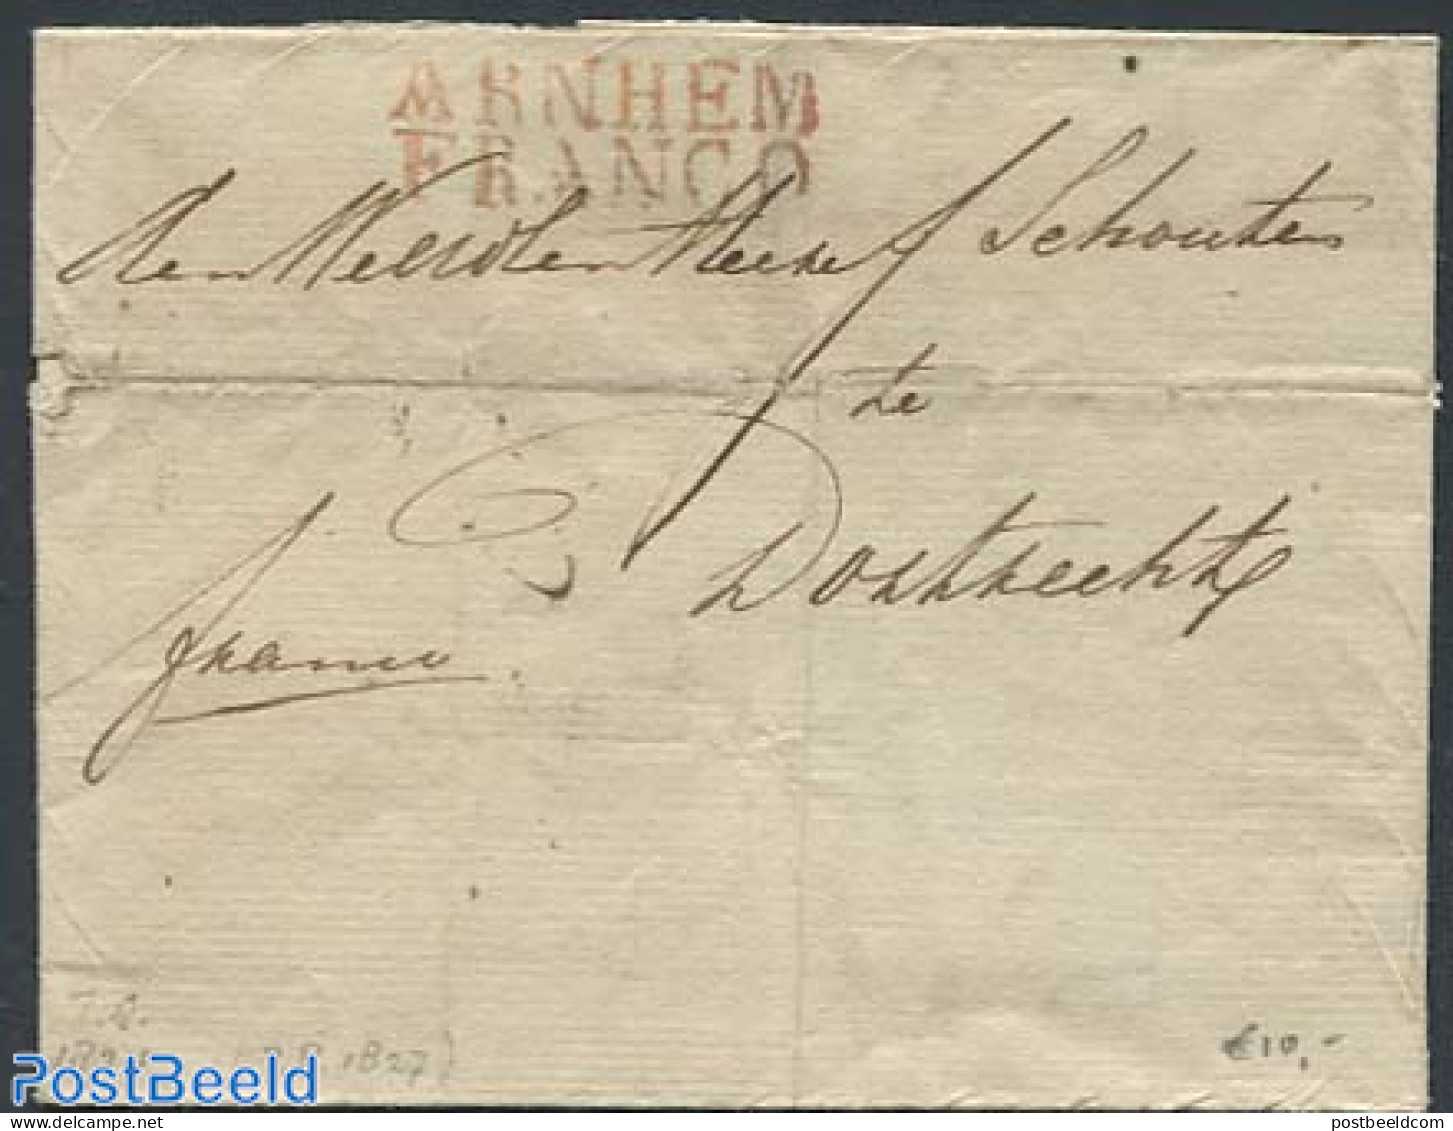 ARNHEM
FRANCO
Den Weledlen Heere J Schouten
te
Dordrecht
franco
1827)
€10,-
PostBeeld
postbeeldcom